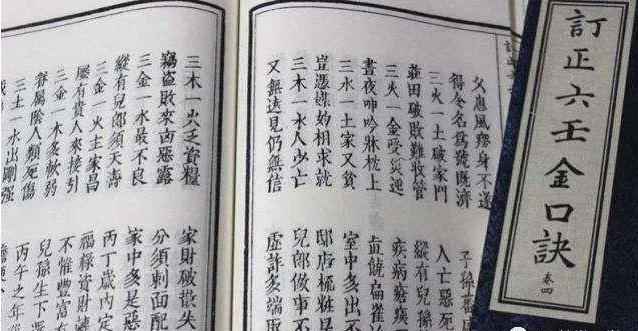 訂正六壬金口訣 卷四
父患風癆身不遂 子孫
得令名爲號旣濟
三火一土破家門 入亡惡死
莊田破敗難收管 縱有兒孫
三火一金受災迍 疾病瘡痍
晝夜呻吟牀枕上 饒扁雀
三水一土家又貧 室中多出不
豈憑媒妁相求就 邸店梳粧是
三木一水人少亡 兒郎做事不
又無遠見仍無信 虛詐多端取
三木一火乏資糧 家財破散失
竊盜敗來凶惡露 分須刺面配
三金一水最不良 家中多是惡
縱有兒郎須夭壽 丙丁歲內定
三金一火主家昌 福祿資財
屢有貴人來接引 不惟豐富
三金一木多軟弱 兒孫生下
眷屬陰人類死傷 丙午之年
三土一水出剛强